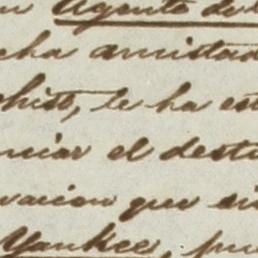 Agente de
cha amistad
chist, le ha es
nciar el desti
vacion que si
Yankee, pu